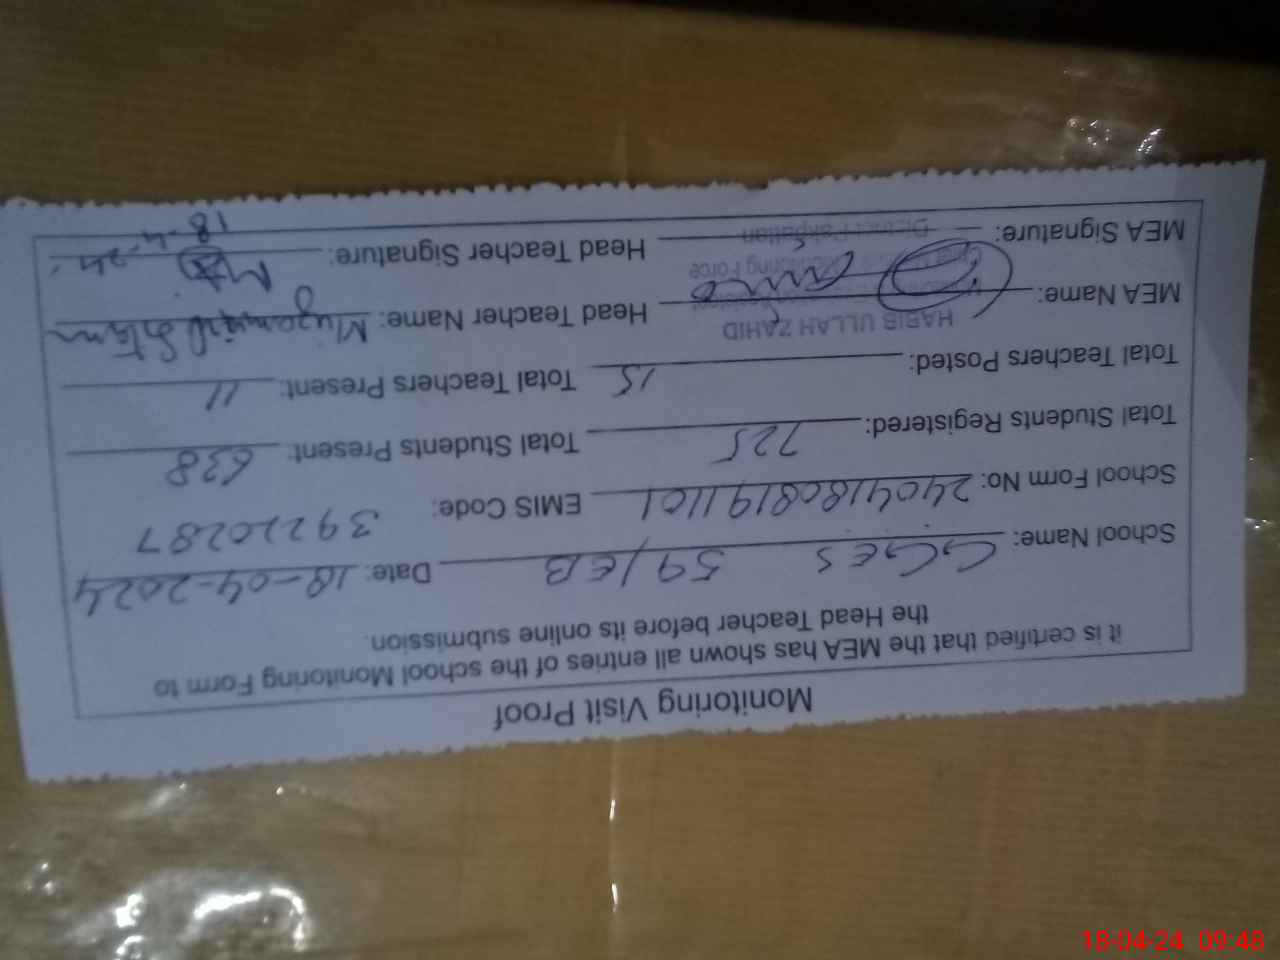 Monitoring Visit Proof
it is certified that the MEA has shown all entries of the school Monitoring Form to
the Head Teacher before its online submission.
School Name: GGES 59/EB Date: 18-04-2024
School Form No: 24041808191101 EMIS Code: 39220287
Total Students Registered: 725 Total Students Present: 638
Total Teachers Posted: 15 Total Teachers Present: 11
HABIB ULLAH ZAHID
MEA Name: Head Teacher Name:
Monitoring Force
MEA Signature: Head Teacher Signature:
District Pakpattan
18-4-24
18-04-24 09:48